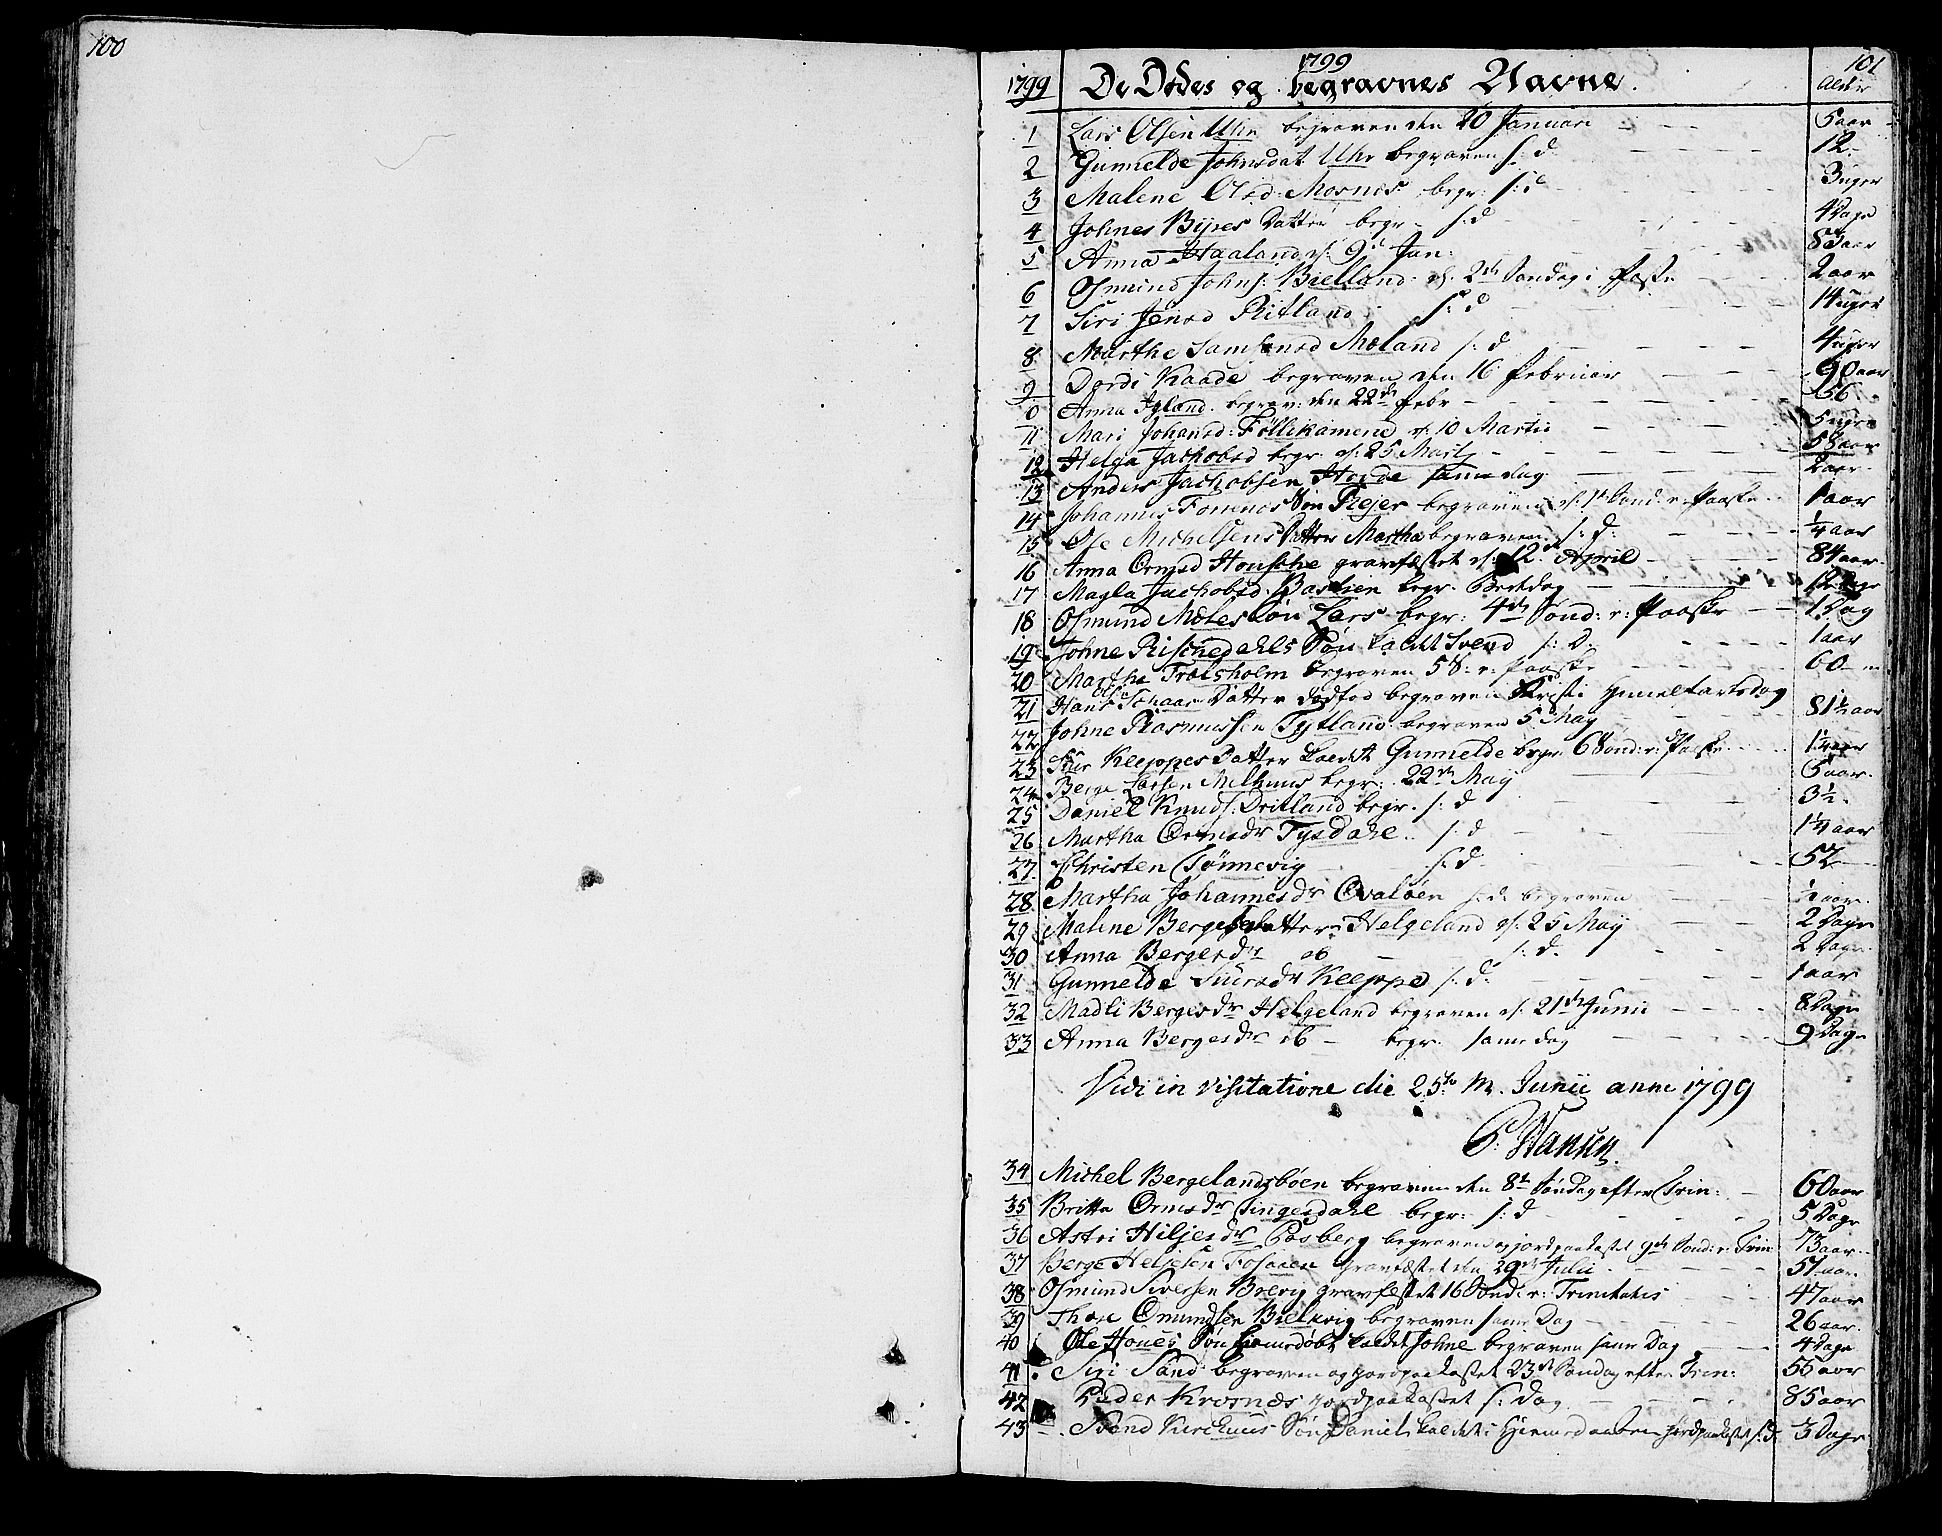 100
1799
101
1799 De Dødes og begravnes Navne. Alder
1 Lars Olsen Uhr begraven den 20 Januari 5 aar
2 Gunnelde Johnsdat Uhr begraven s: d. 12
3 Malene Olsd. Mosnes begr: s: d 3 uger
4 Johnes Byes Datter begr. s: d 4 Dage
5 Anna Haaland d. 9d Jan: 83 aar
6 Osmund Johns: Bielland d. 2de Søndag i Faste 2 aar
7 Siri Jensd Ritland s: d 14 uger
8 Marthe Samsonsd Møland s: d 4 uger
9 Dordi Kaade begraven den 16 Februar 90 aar
0 Anna Igland begrav: den 22de Febr 56
11 Mari Johansd: Føllikamene d. 10 Martii 5 uger
12 Helga Jachobsd begr. d. 25 Martj 58 aar
13 Anders Jachobsen Hovde samme dag 2 aar
14 Johannes Fonnes Søn Rejer begraven d. 1st Sønd: e: Paaske 1 aar
15 Ole Michelsens Datter Martha begraven s: d. ¼ aar
16 Anna Ormsd Housche gravfæstet d. 12d April 84 aar
17 Magla Jachobsd. Bastien begr. Bededag 12 Dage
18 Osmund Møles Søn Lars begr: 4de Sønd: e: Paaske 1 Dag
19 Johne Rischedahls Søn kaldet Svend s: D. 1 aar
20 Martha Trælsholm begraven 5 S: e: Paaske 60
21 Hans Olsen Schaar Datter dødfød begraven Kristi Himmelfartsdag
22 Johne Rasmussen Tytland begraven 5 May 81½ aar
23 Siur Kleppes Datter kaldet Gunnelde begr. 6 Sønd: e: Paaske 1¼ aar
24 Berge Larsen Melhuus begr: 22de May 5 aar
25 Daniel Knuds: Dritland begr. s: d 3½
26 Martha Ormsdr Tysdahl s: d 1¼ aar
27 Christen Tønnevig s: d. 52
28 Martha Johannesdr Ovaløen s: d. begraven ½ aar
29 Malene Berges Datter Helgeland d. 25 May 2 Dage
30 Anna Bergesdr ib s: d. 2 Dage
31 Gunnelde Siursdr Kleppe s: d. 1 aar
32 Madli Bergesdr Helgeland begraven d. 21de Junii 8 Dage
33 Anna Bergesdr ib begr. samme dag 9 Dage
Vidi in visitatione die 25to M. Junii anni 1799
P. Hansen.
34 Michel Bergelandsbøen begraven den 8de Søndag efter Trin: 60 aar
35 Britta Ormsdr Tingesdahl begr: s: d 5 Dage
36 Astri Hiljesdr Fosberg begraven og jordpaakastet 9de Sønd: e: Trin 73 aar
37 Berge Heljesen Fosaaen gravfæstet den 29de Julii 51 aar
38 Osmund Siversen Brevig gravfæstet 16 Sønd: e: Trinitatis 47 aar
39 Thore Omundsen Bielkevig begraven samme Dag 26 aar.
40 Ole Houes Søn hiemedøbt kaldet Johne begraven samme Dag 4 Dage
41 Siri Sand begraven og jordpaakastet 23de Søndag efter Trin: 55 aar
42 Peder Krosnæs jordpaakastet s: dag 85 aar
43 Svend Kirchuus Søn Daniel kaldet i Hiemedaaben jordpaakastet s: d. 3 Dage